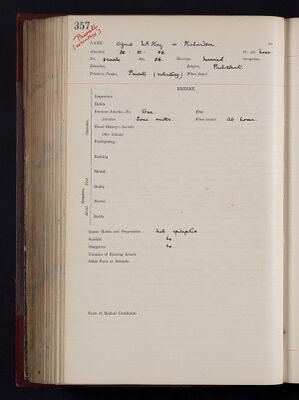 357
Private
(voluntary)
NAME. Agnes McKay or Richardson No.
Admitted 20 - 10 - 08. Pr. Ad. home
Sex, Female Age, 56. Marriage, married Occupation,
Education, Religion, Protestant.
Private or Pauper, Private (voluntary) Where from?
HISTORY.
Disposition
Habits
Previous Attacks—No. One. Kind
Duration Some months. Where treated At home.
Moral History—Insanity
Other Diseases
Predisposing
Exciting
Mental
Bodily
Mental
Bodily
Insane Habits and Propensities Not epileptic
Suicidal No.
Dangerous No.
Duration of Existing Attack
Other Facts or Remarks
Facts of Medical Certificates